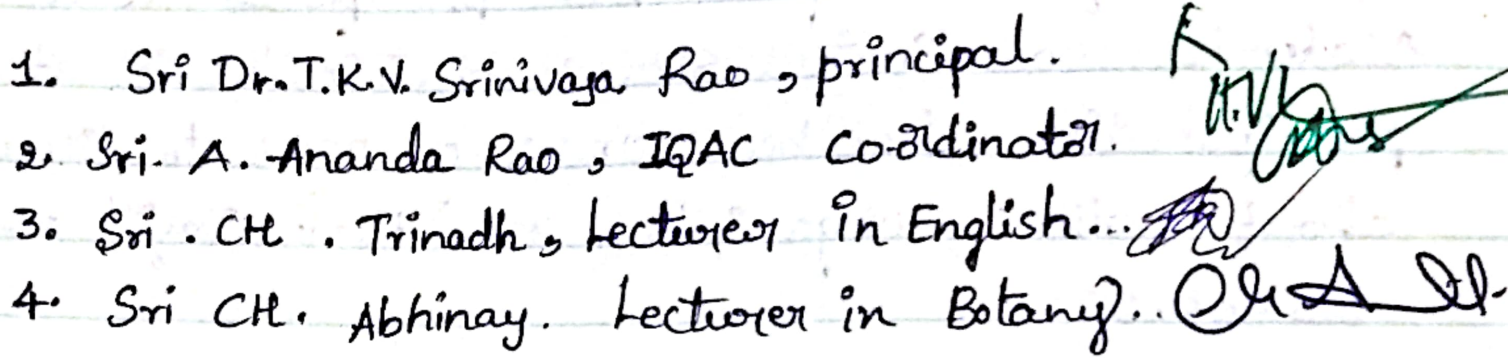 1. Sri Dr.T.K.V. Srinivasa Rao, principal.
2. Sri. A. Ananda Rao, IQAC Co-ordinator.
3. Sri. CH. Trinadh, Lecturer in English...
4. Sri CH. Abhinay. Lecturer in Botany..